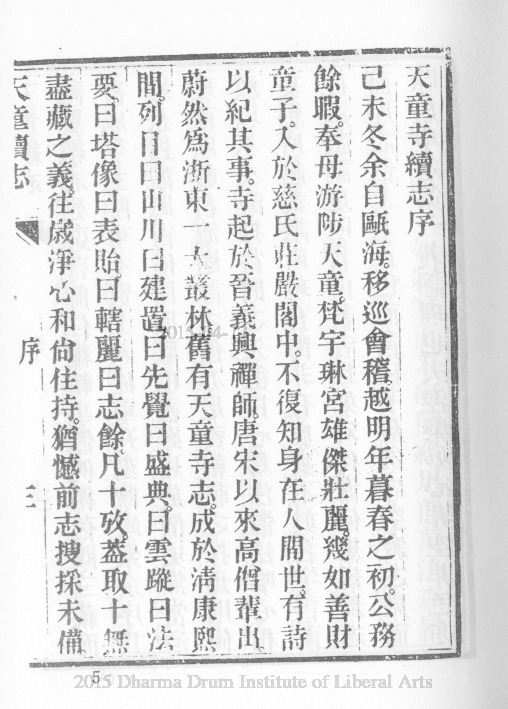 天童寺續志序
己未冬余自甌海移巡會稽越明年暮春之初公務
餘暇奉母游陟天童梵宇琳宮雄傑壯麗幾如善財
童子入於慈氏莊嚴閣中不復知身在人間世有詩
以紀其事寺起於晉義興禪師唐宋以來高僧輩出
蔚然為浙東一大叢林舊有天童寺志成於清康熙
間列目曰山川曰建置曰先覺曰盛典曰雲蹤曰法
要曰塔像曰表貽曰轄麗曰志餘凡十攷蓋取十無
盡藏之義往歲淨心和尙住持猶憾前志搜採未備
天童續志
序
三
5
2015 Dharma Drum Institute of Liberal Arts